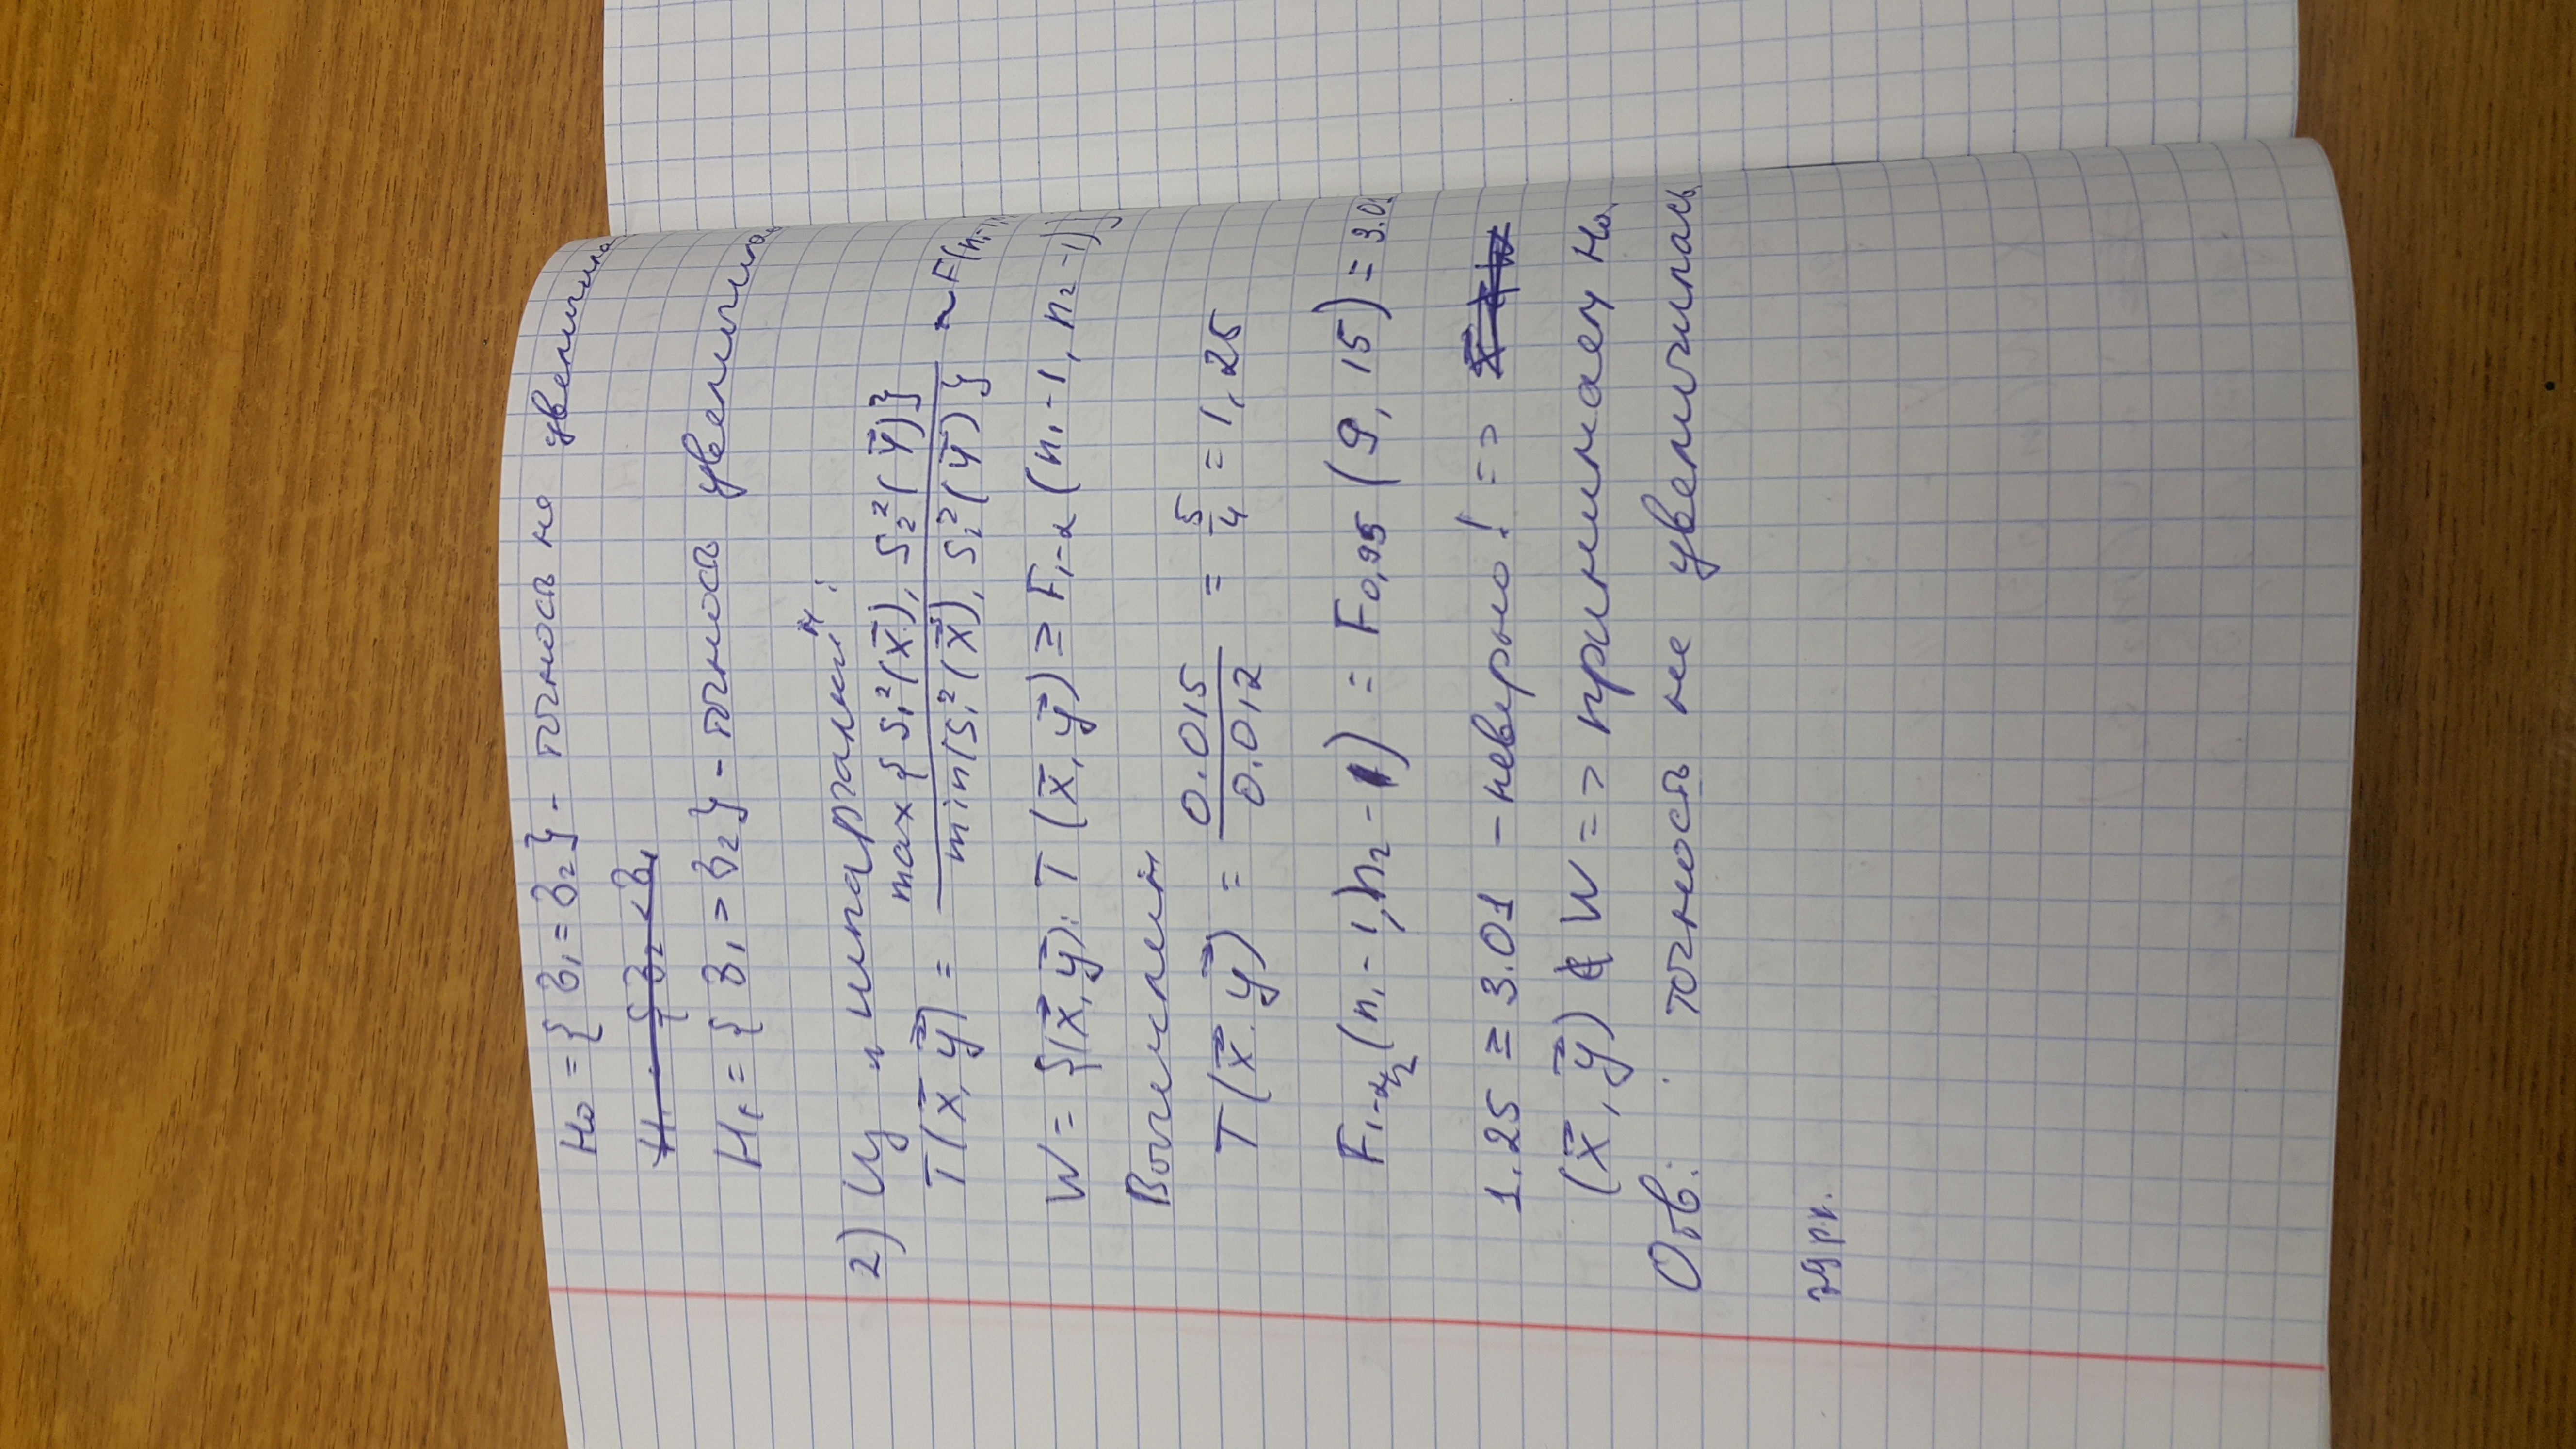 H₀ = { σ₁ = σ₂ } - точность не увеличила
H₁ = { σ₁ > σ₂ } - точность увеличила
2) Из и
T(x⃗, y⃗) = max{S₁²(x⃗), S₂²(y⃗)} / min{S₁²(x⃗), S₂²(y⃗)} ~ F(n₁-1
W = {(x⃗, y⃗): T(x⃗, y⃗) ≥ F₁₋α(n₁-1, n₂-1)}
Вычислим
T(x⃗, y⃗) = 0.015 / 0.012 = 5/4 = 1,25
F₁₋α/₂(n₁-1, n₂-1) = F₀,₉₅(9, 15) = 3.01
1.25 ≥ 3.01 - неверно! =>
(x⃗, y⃗) ∉ W => принимаем H₀
Отв: точность не увеличилась